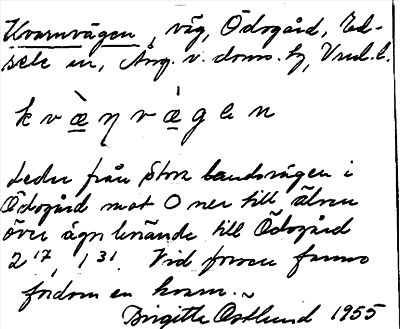 Kvarnvägen, väg, Ödsgård, Ed-
sele sn, Ång. v. doms. hg, Vnl. l.
k v æ̀ ŋ v æ̀ g e n
Leder från Stora landsvägen i
Ödsgård mot O ner till älven
över ägor hörande till Ödsgård
2¹⁷, 1³¹. Vid forsen fanns
fordom en kvarn.
Birgitta Östlund 1955